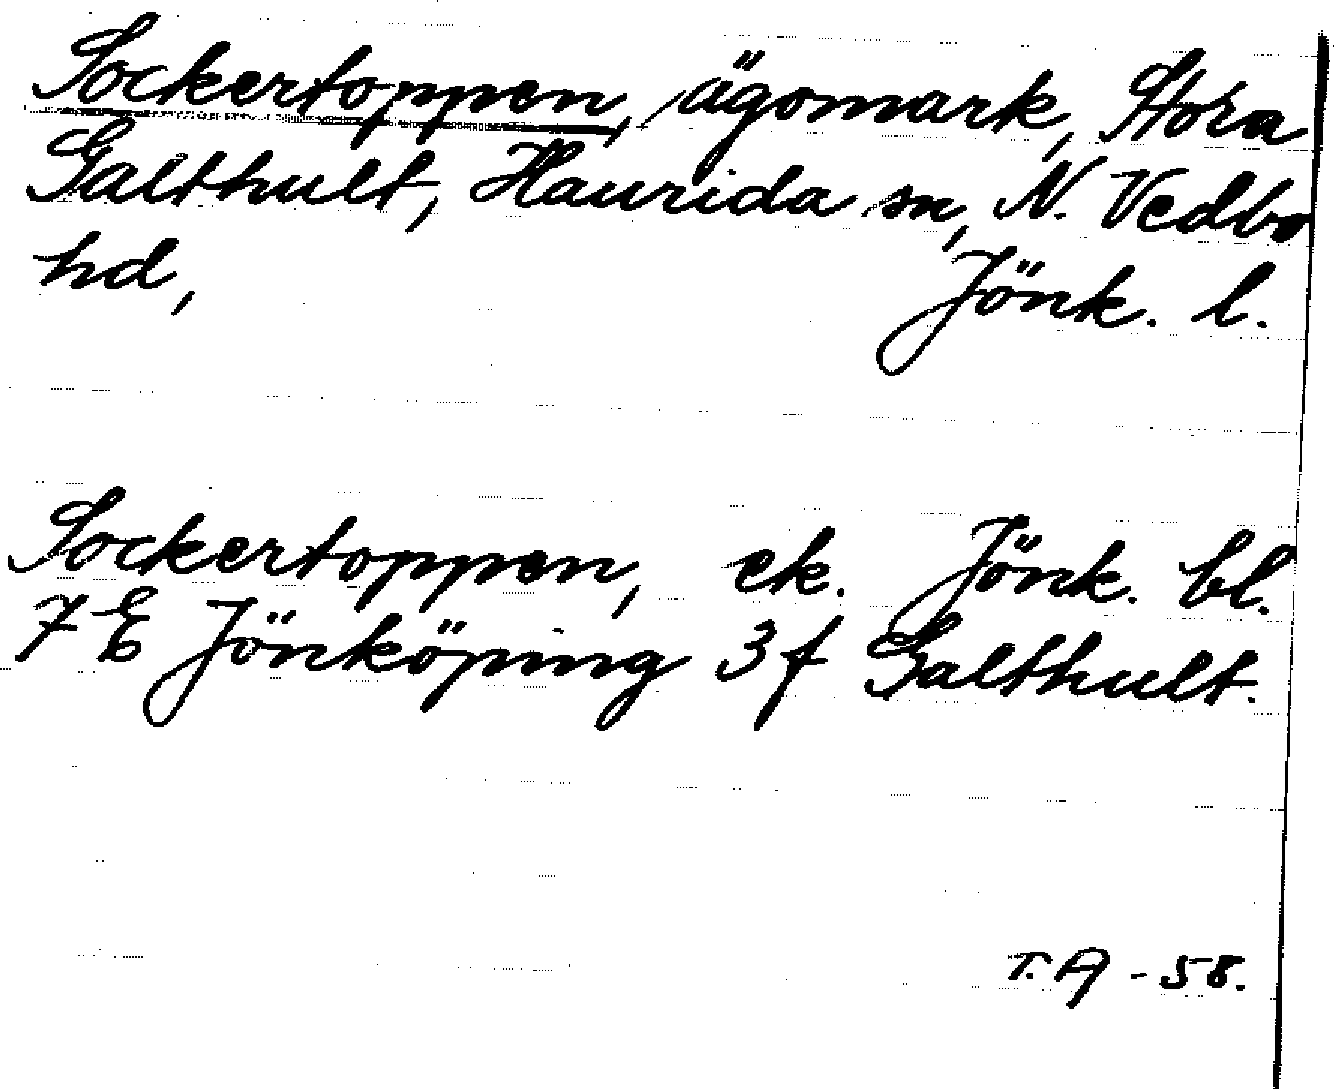 Sockertoppen, ägomark, Stora
Galthult, Haurida sn, N. Vedbo
hd, Jönk. l.
Sockertoppen, ek. Jönk. bl.
7 E Jönköping 3 f Galthult.
T. A - 58.